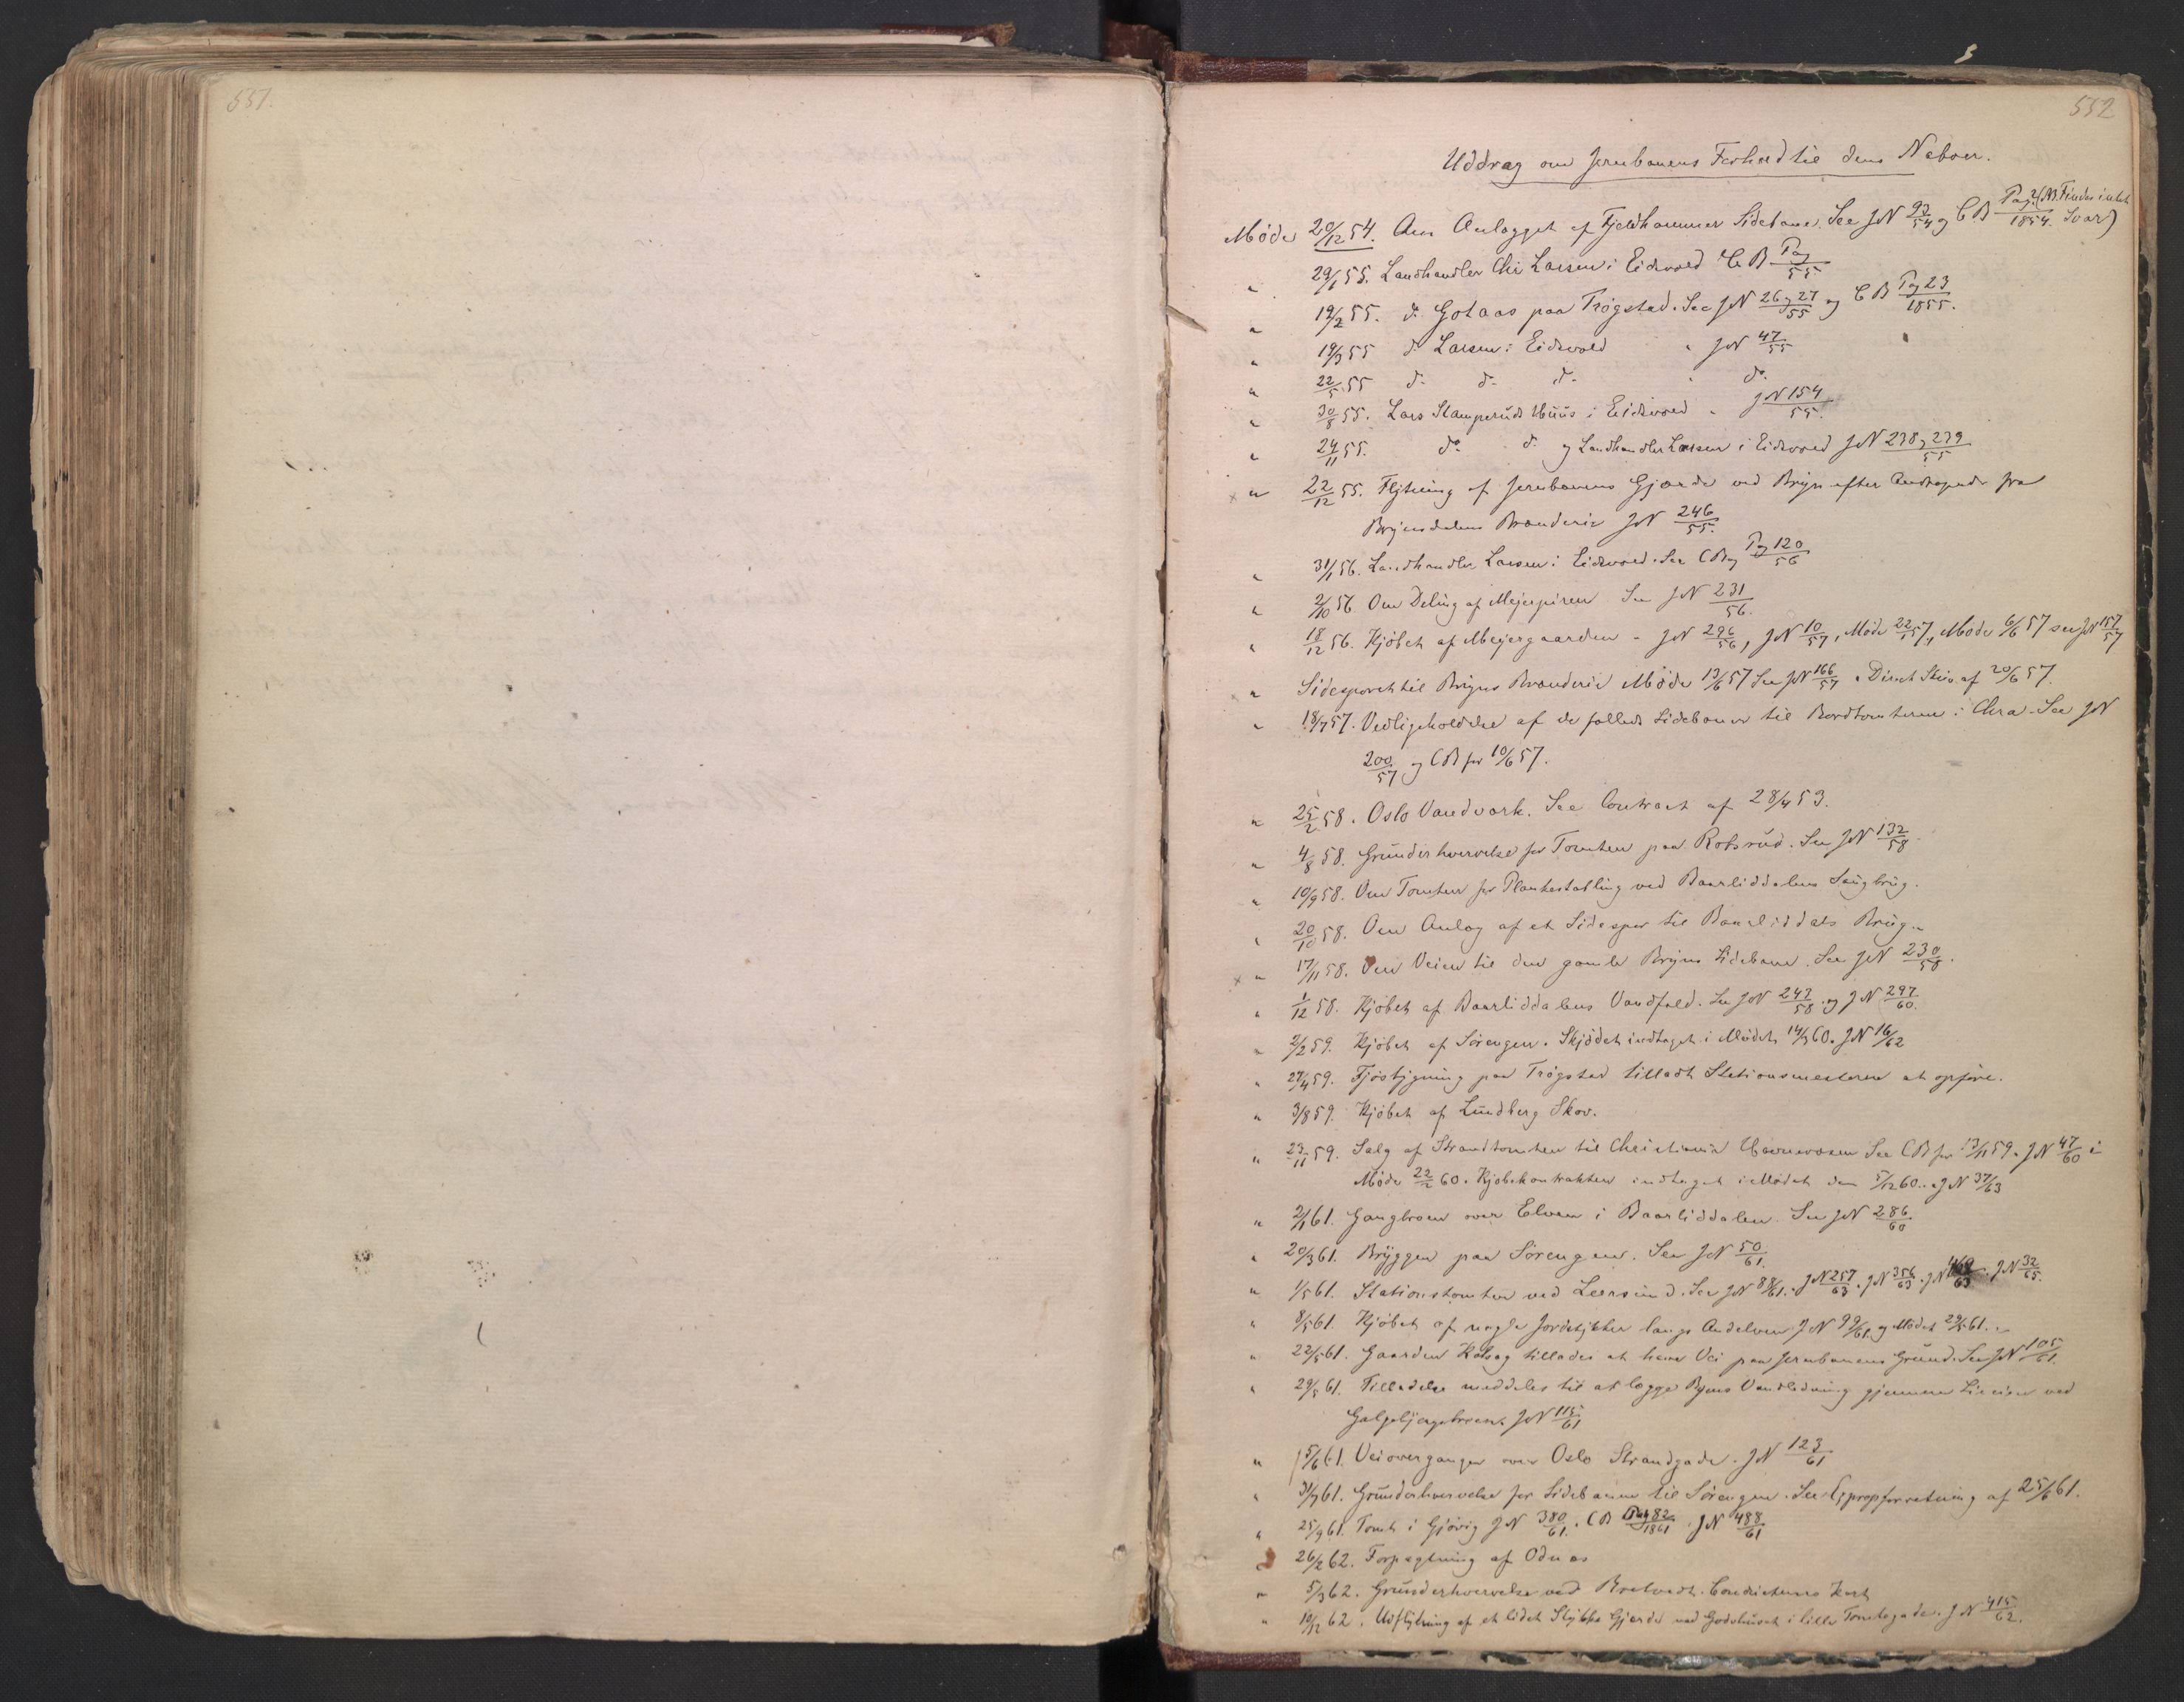 551.
552
Uddrag om Jernbanens Forhold til dens Naboer.
Møde 20/12 54. Om Anlægget af Fjeldhammer Sidebane. See JN 93/54 og CB Pag 2/1854. (NB. Findes intet Svar)
" 29/1 55. Landhandler Chr Larsen i Eidsvold CB Pag/55
" 19/2 55. do Gotaas paa Trøgstad. See JN 26 og 27/55 og CB Pag 23/1855.
" 19/3 55 do Larsen i Eidsvold " JN 47/55
" 22/5 55 do do do " do
" 30/8 55. Lars Stamperuds Huus i Eidsvold " JN 154/55.
" 24/11 55. do do og Landhandler Larsen i Eidsvold JN 238 og 239/55
" 22/12 55. Flytning af Jernbanens Gjærde ved Bryn efter Andragende fra
Brynsdalens Brænderie JN 246/55.
" 31/1 56. Landhandler Larsen i Eidsvold. See CB Pag 120/56
" 2/10 56 Om Deling af Mejerpiren See JN 231/56.
" 18/12 56. Kjøbet af Meyergaarden - JN 296/56, JN 10/57, Møde 22/1 57, Møde 6/6 57 see JN 157/57
" Sidesporet til Bryns Brænderie Møde 13/6 57 See JN 166/57 " Direct Skriv. af 20/6 57.
" 18/7 57. Vedligeholdelse af de fælleds Sidebaner til Bordtomterne i Chra. See JN
200/57 og CB for 10/6 57.
" 25/2 58. Oslo Vandværk. See Contract af 28/4 53.
" 4/8 58. Grunderhvervelse for Tomten paa Robsrud. See JN 132/58.
" 10/9 58. Om Tomten for Plankestabling ved Baarliddalens Saugbrug.
" 20/10 58. Om Anlæg af et Sidespor til Baarliddals Brug.
" 17/11 58. Om Veien til den gamle Bryns Sidebane. See JN 230/58.
" 1/12 58. Kjøbet af Baarliddalens Vandfald. See JN 243/58 og JN 297/60.
" 2/2 59. Kjøbet af Sørengen. Skjødet indtaget i Mødet 14/3 60. JN 16/62
" 27/4 59. Fjøsbygning paa Trøgstad tilladt Stationsmesteren at opføre.
" 3/8 59. Kjøbet af Lundberg Skov.
" 23/11 59. Salg af Strandtomten til Christiania Havnevæsen See CB for 13/11 59. JN 47/60 i
Møde 22/2 60. Kjøbekontrakten indtaget i Mødet den 5/12 60. JN 37/63
" 2/1 61. Gangbroen over Elven i Baarliddalen. See JN 286/60
" 20/3 61. Bryggen paa Sørengen. See JN 50/61.
" 1/5 61. Stationstomten ved Leersund. See JN 88/61. JN 257/63. JN 356/63. JN 469/63. JN 32/65.
" 8/5 61. Kjøbet af nogle Jordstykker langs Andelven JN 99/61. og Mødet 29/5 61.
" 22/5 61. Gaarden Kolsag tillades at have Vei paa Jernbanens Grund. See JN 105/61.
" 29/5 61. Tilladelse meddeles til at lægge Byens Vandledning gjennem Linien ved
Galgebjergsbroen. JN 115/61
" 5/6 61. Veiovergangen over Oslo Strandgade. JN 123/61
" 31/7 61. Grunderhvervelse for Sidebanen til Sørengen. See Expropforretning af 25/6 61.
" 25/9 61. Tomt i Gjøvig JN 380/61. CB Pag 82/1861. JN 488/61
" 26/2 62. Forpagtning af Odnæs
" 5/3 62. Grunderhvervelse ved Bredvedt. Conducteurs Kart
" 10/12 62. Udflytning af et lidet Stykke Gjærde ved Godshuset i lille Tomtegade. JN 415/62.